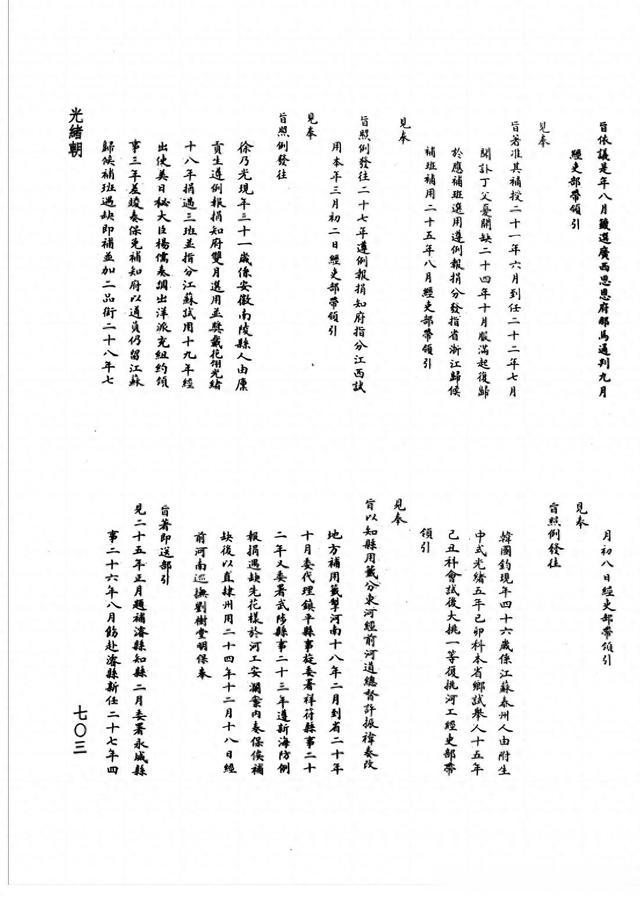 旨依議是年八月籤選廣西思恩府那馬通判九月
經吏部帶領引
見奉
旨著准其補授二十一年六月到任二十二年七月
聞訃丁父憂開缺二十四年十月服滿起復歸
於應補班選用遵例報捐分發指省浙江歸候
補班補用二十五年八月經吏部帶領引
見奉
旨照例發往二十七年遵例報捐知府指分江西試
用本年三月初二日經吏部帶領引
見奉
旨照例發往
徐乃光現年三十一歲係安徽南陵縣人由廩
貢生遵例報捐知府雙月選用並獎戴花翎光緒
十八年捐過三班並指分江蘇試用十九年經
出使美日秘大臣楊儒奏調出洋派充紐約領
事三年差竣奏保免補知府以道員仍留江蘇
歸候補班遇缺即補並加二品銜二十八年七
光緒朝
月初八日經吏部帶領引
見奉
旨照例發往
韓國鈞現年四十六歲係江蘇泰州人由附生
中式光緒五年己卯科本省鄉試舉人十五年
己丑科會試後大挑一等復挑河工經吏部帶
領引
見奉
旨以知縣用籤分東河經前河道總督許振禕奏改
地方補用籤掣河南十八年二月到省二十年
十月委代理鎮平縣事旋委署祥符縣事二十
二年又委署武陟縣事二十三年遵新海防例
報捐遇缺先花樣於河工安瀾案內奏保俟補
缺後以直隸州用二十四年十二月十八日經
前河南巡撫劉樹堂明保奏
旨著即送部引
見二十五年正月題補濬縣知縣二月委署永城縣
事二十六年八月飭赴濬縣新任二十七年四
七〇三